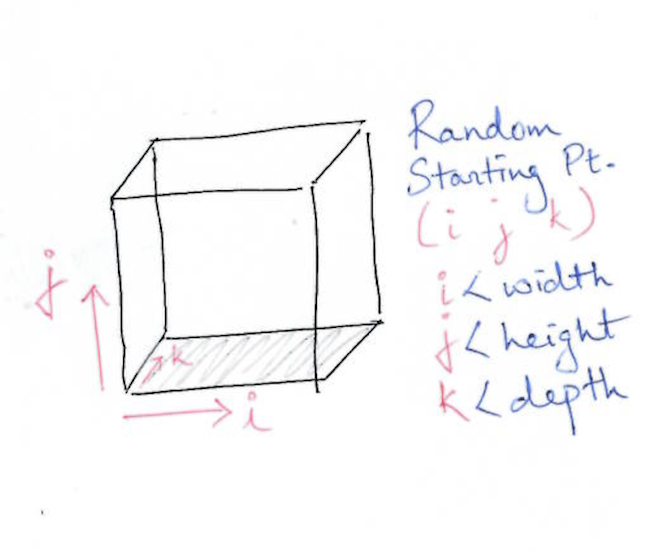 Random
Starting Pt.
(i j k)
i < width
j < height
k < depth
j
k
i